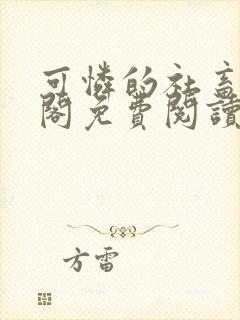 可憐的社畜
閣免費閱讀
方雷